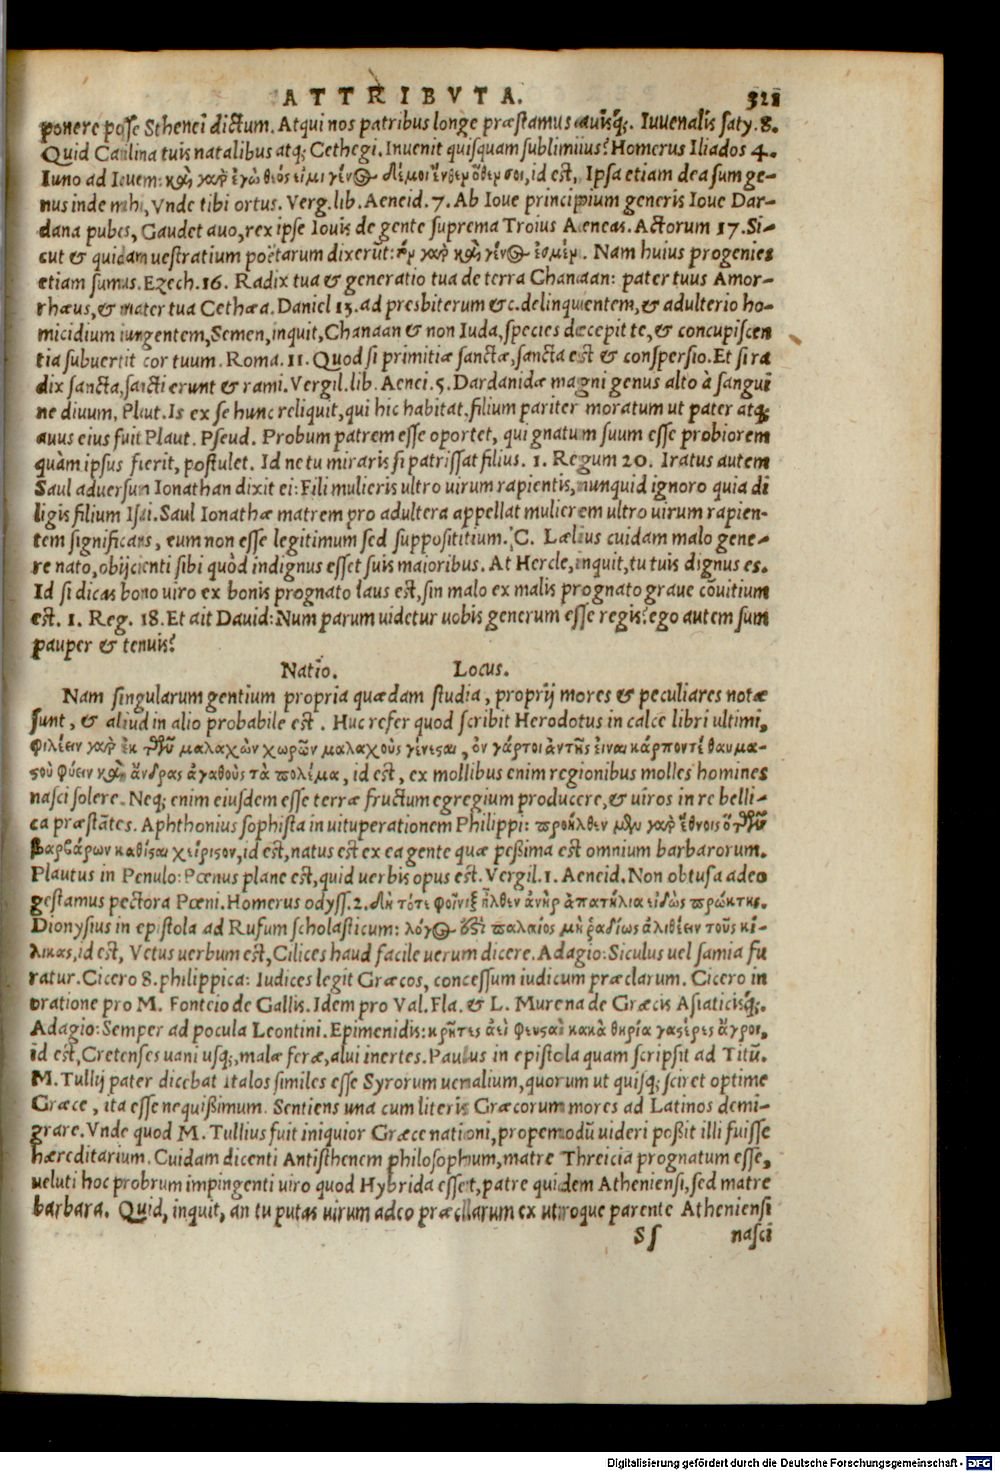 ATTRIBVTA. 321
ponere posse Stheneī dictum. Atqui nos patribus longe præstamus auisq́;. Iuuenalis saty. 8.
Quid Catilina tuis natalibus atq; Cethegi. Inuenit quisquam sublimiius? Homerus Iliados 4.
Iuno ad Iouem: καὶ γαρ ἐγὼ θεός εἰμι γένος δέ μοι ἔνθεν ὅθεν σοι, id est, Ipsa etiam dea sum ge-
nus inde mihi, Vnde tibi ortus. Verg. lib. Aeneid. 7. Ab Ioue principium generis Ioue Dar-
dana pubes, Gaudet auo, rex ipse Iouis de gente suprema Troius Aeneas. Actorum 17. Si-
cut & quidam uestratium poëtarum dixerūt: ἐκ γαρ καὶ γένος ἐσμέν. Nam huius progenies
etiam sumus. Ezech. 16. Radix tua & generatio tua de terra Chanaan: pater tuus Amor-
rhæus, & mater tua Cethæa. Daniel 13. ad presbiterum &c. delinquientem, & adulterio ho-
micidium iungentem, Semen, inquit, Chanaan & non Iuda, species decepit te, & concupiscen
tia subuertit cor tuum. Roma. 11. Quod si primitiæ sanctæ, sancta est & conspersio. Et si ra
dix sancta, sancti erunt & rami. Vergil. lib. Aenei. 5. Dardanidæ magni genus alto à sangui
ne diuum, Plaut. Is ex se hunc reliquit, qui hic habitat, filium pariter moratum ut pater atq;
auus eius fuit Plaut. Pseud. Probum patrem esse oportet, qui gnatum suum esse probiorem
quàm ipsus fierit, postulet. Id ne tu miraris si patrissat filius. 1. Regum 20. Iratus autem
Saul aduersum Ionathan dixit ei: Fili mulieris ultro uirum rapientis, nunquid ignoro quia di
ligis filium Isai. Saul Ionathæ matrem pro adultera appellat mulierem ultro uirum rapien-
tem significans, eum non esse legitimum sed supposititium. C. Lælius cuidam malo gene-
re nato, obijcienti sibi quòd indignus esset suis maioribus. At Hercle, inquit, tu tuis dignus es.
Id si dicas bono uiro ex bonis prognato laus est, sin malo ex malis prognato graue cōuitium
est. 1. Reg. 18. Et ait Dauid: Num parum uidetur uobis generum esse regis? ego autem sum
pauper & tenuis?
Natio. Locus.
Nam singularum gentium propria quædam studia, proprij mores & peculiares notæ
sunt, & aliud in alio probabile est. Huc refer quod scribit Herodotus in calce libri ultimi,
φιλέειν γαρ ἐκ τῶν μαλακῶν χωρῶν μαλακοὺς γίνεσαι, ὀν γάρτοι ἀντῆς εἶναι κάρπον τέ θαυμα-
σοῦ φύειν καὶ ἄνδρας ἀγαθοὺς τὰ πολέμια, id est, ex mollibus enim regionibus molles homines
nasci solere. Neq; enim eiusdem esse terræ fructum egregium producere, & uiros in re belli-
ca præstātes. Aphthonius sophista in uituperationem Philippi: προῆλθεν μὲν γαρ ἔθνοις ὃ τῶν
βαρβάρων καθίσαι χείρισον, id est, natus est ex ea gente quæ peßima est omnium barbarorum.
Plautus in Penulo: Pœnus plane est, quid uerbis opus est. Vergil. 1. Aeneid. Non obtusa adeo
gestamus pectora Pœni. Homerus odyss. 2. Δὴ τότε φοῖνιξ ἦλθεν ἀνὴρ ἀπατήλια εἰδὼς πρώκτης.
Dionysius in epistola ad Rufum scholasticum: λόγος ἐστὶ παλαιὸς μὴ ῥαδίως ἀλιθέειν τοῦς κί-
λικας, id est, Vetus uerbum est, Cilices haud facile uerum dicere. Adagio: Siculus uel samia fu
ratur. Cicero 8. philippica: Iudices legit Græcos, concessum iudicum præclarum. Cicero in
oratione pro M. Fonteio de Gallis. Idem pro Val. Fla. & L. Murena de Græcis Asiaticisq́;.
Adagio: Semper ad pocula Leontini. Epimenidis: κρῆτες ἀεὶ ψευσαὶ κακὰ θηρία γαςέρες ἄγροι,
id est, Cretenses uani usq;, malæ feræ, alui inertes. Paulus in epistola quam scripsit ad Titū.
M. Tullij pater dicebat italos similes esse Syrorum uenalium, quorum ut quisq; sciret optime
Græce, ita esse nequißimum. Sentiens una cum literis Græcorum mores ad Latinos demi-
grare. Vnde quod M. Tullius fuit iniquior Græce nationi, propemodū uideri poßit illi fuisse
hæreditarium. Cuidam dicenti Antisthenem philosophum, matre Threicia prognatum esse,
ueluti hoc probrum impingenti uiro quod Hybrida esset, patre quidem Atheniensi, sed matre
barbara. Quid, inquit, an tu putas uirum adeo præclarum ex utroque parente Atheniensi
Sſ nasci
Digitalisierung gefördert durch die Deutsche Forschungsgemeinschaft - DFG